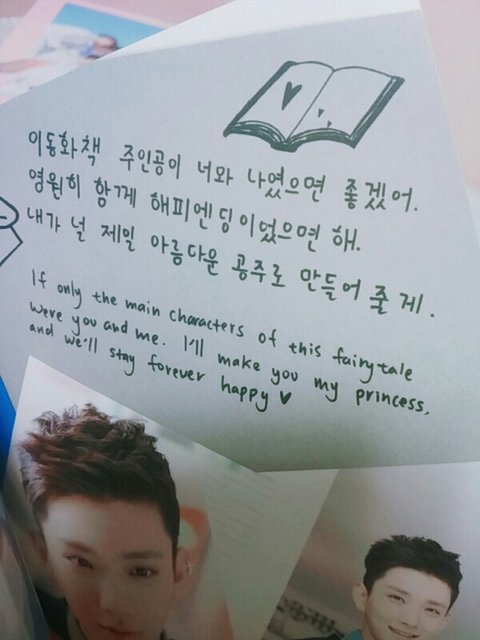 이동화책 주인공이 너와 나였으면 좋겠어.
영원히 함께 해피엔딩이었으면 해.
내가 널 제일 아름다운 공주로 만들어 줄게.
If only the main characters of this fairytale
were you and me. I'll make you my princess,
and we'll stay forever happy ♥